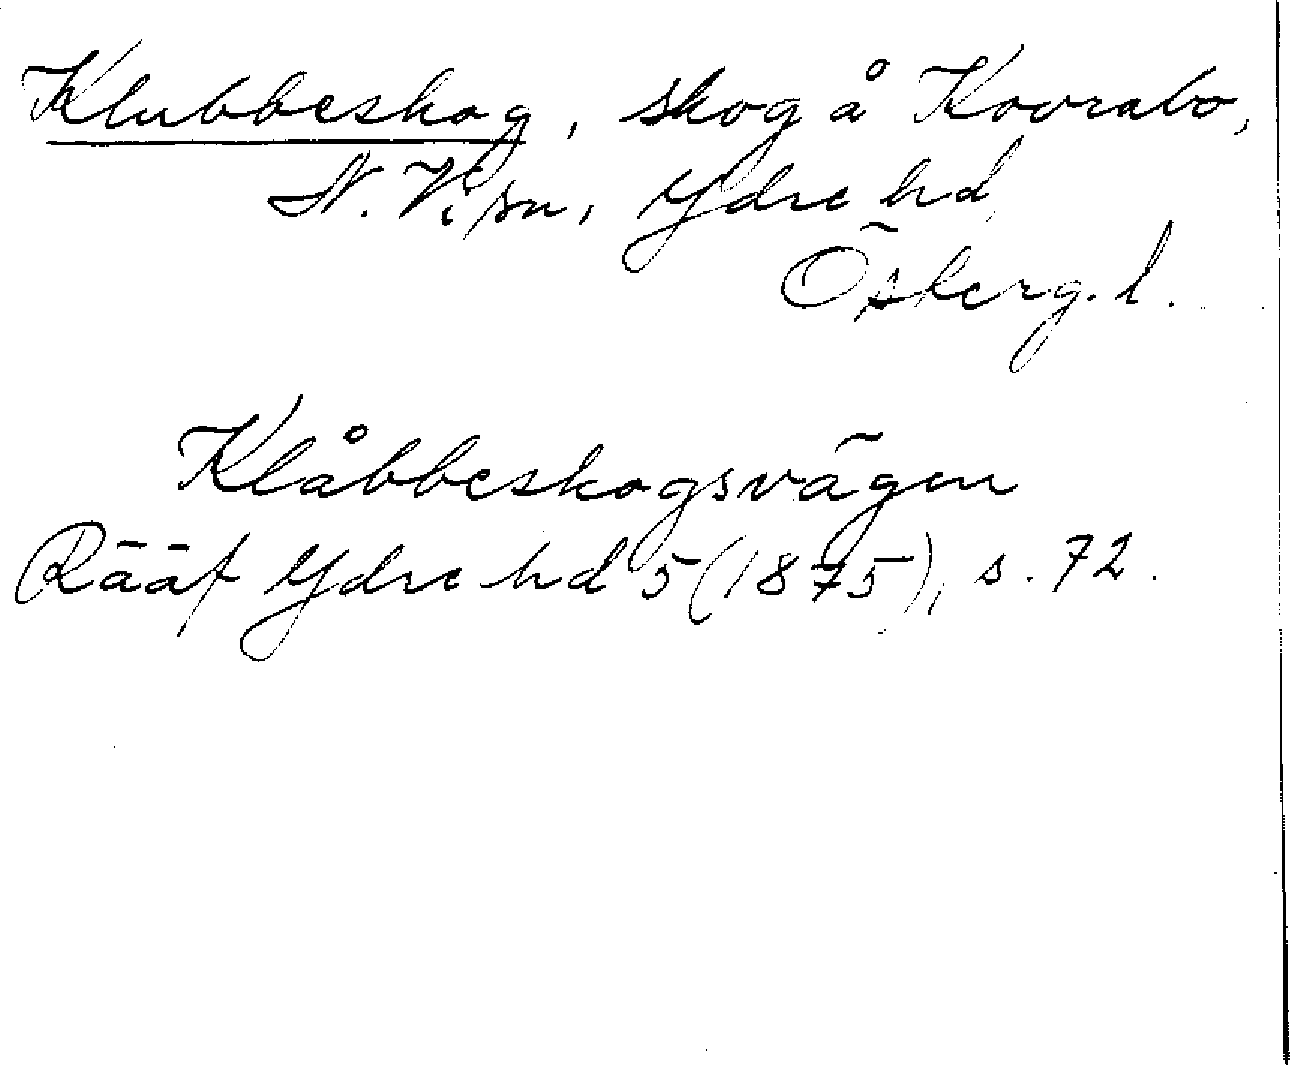 Klubbeskog, skog å Kovrabo,
N. Vi sn, Ydre hd
Österg. l.
Klåbbeskogsvägen
Rääf Ydre hd 5 (1875), s. 72.